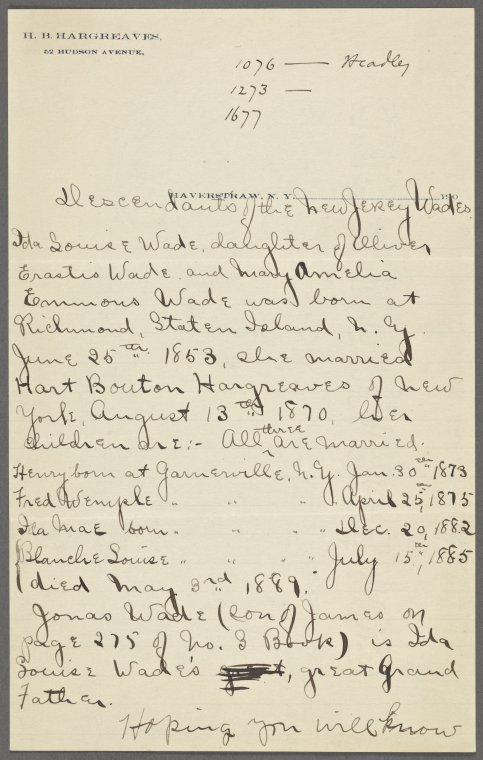 H. B. HARGREAVES,
52 HUDSON AVENUE,
1076 — Headley
1273 —
1677
HAVERSTRAW, N. Y. 190
Descendants of the New Jersey Wades.
Ida Louise Wade, daughter of Oliver
Erastis Wade and Mary Amelia
Emmons Wade was born at
Richmond, Staten Island, N. Y.
June 25th 1853, she married
Hart Bouton Hargreaves of New
York, August 13th 1870, her
three
children are:- All are married.
Henry born at Garnerville, N. Y. Jan. 30th 1873
Fred Wemple " " " April 25th, 1875
Ida Mae born " " " Dec. 20, 1882
Blanche Louise " " " " July 15th, 1885
(died May 3rd 1889.
Jonas Wade (son of James on
page 275 of No. 3 Book) is Ida
Louise Wade's great Grand
Father.
Hoping you will know